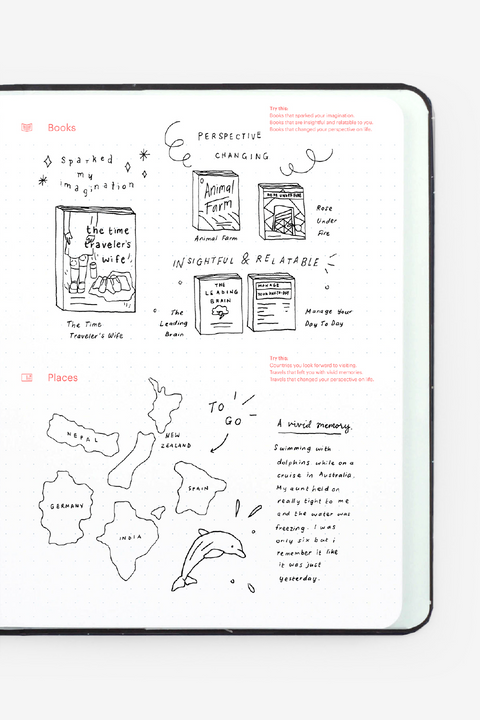 Books
Try this.
Books that sparked your imagination.
Books that are insightful and relatable to you.
Books that changed your perspective on life.
Sparked
my
imagination
the time
traveler's
wife
The Time
Traveler's Wife
PERSPECTIVE
CHANGING
Animal
Farm
Animal Farm
ROSE UNDER FIRE
Rose
Under
Fire
INSIGHTFUL & RELATABLE
THE
LEADING
BRAIN
The
Leading
Brain
MANAGE
YOUR DAY-TO-DAY
Manage Your
Day To Day
Places
Try this.
Countries you look forward to visiting.
Travels that left you with vivid memories.
Travels that changed your perspective on life.
TO
GO
NEPAL
NEW
ZEALAND
GERMANY
SPAIN
INDIA
A vivid memory.
Swimming with
dolphins while on a
cruise in Australia.
My aunt held on
really tight to me
and the water was
freezing. I was
only six but i
remember it like
it was just
yesterday.